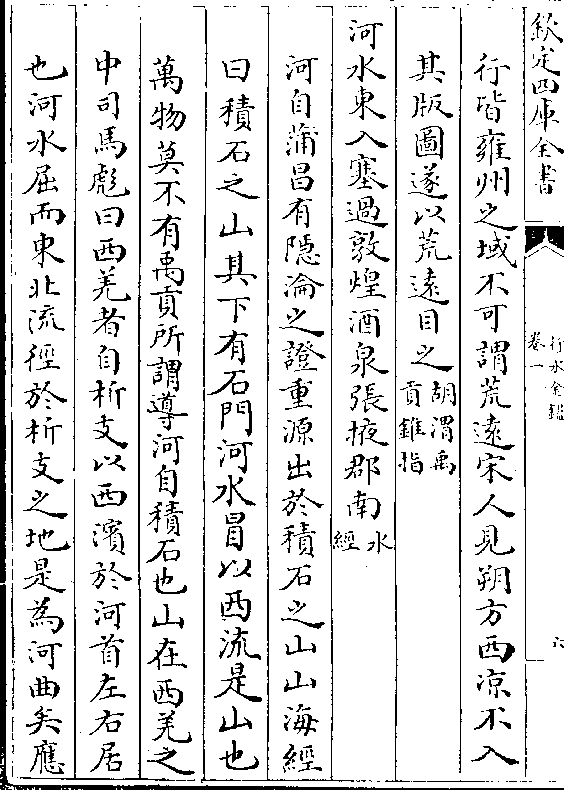 欽定四庫全書
行水金鑑
卷一
六
行皆雍州之域不可謂荒遠宋人見朔方西凉不入
其版圖遂以荒遠目之胡渭禹貢錐指
河水東入塞過敦煌酒泉張掖郡南水經
河自蒲昌有隱淪之證重源出於積石之山山海經
曰積石之山其下有石門河水冒以西流是山也
萬物莫不有禹貢所謂導河自積石也山在西羌之
中司馬彪曰西羌者自析支以西濱於河首左右居
也河水屈而東北流徑於析支之地是為河曲矣應